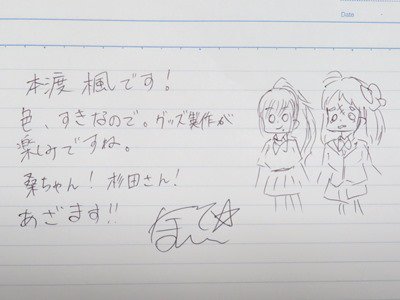 本渡 楓です！
色、すきなので。グッズ製作が
楽しみですね。
桑ちゃん！杉田さん！
あざます!!
Date